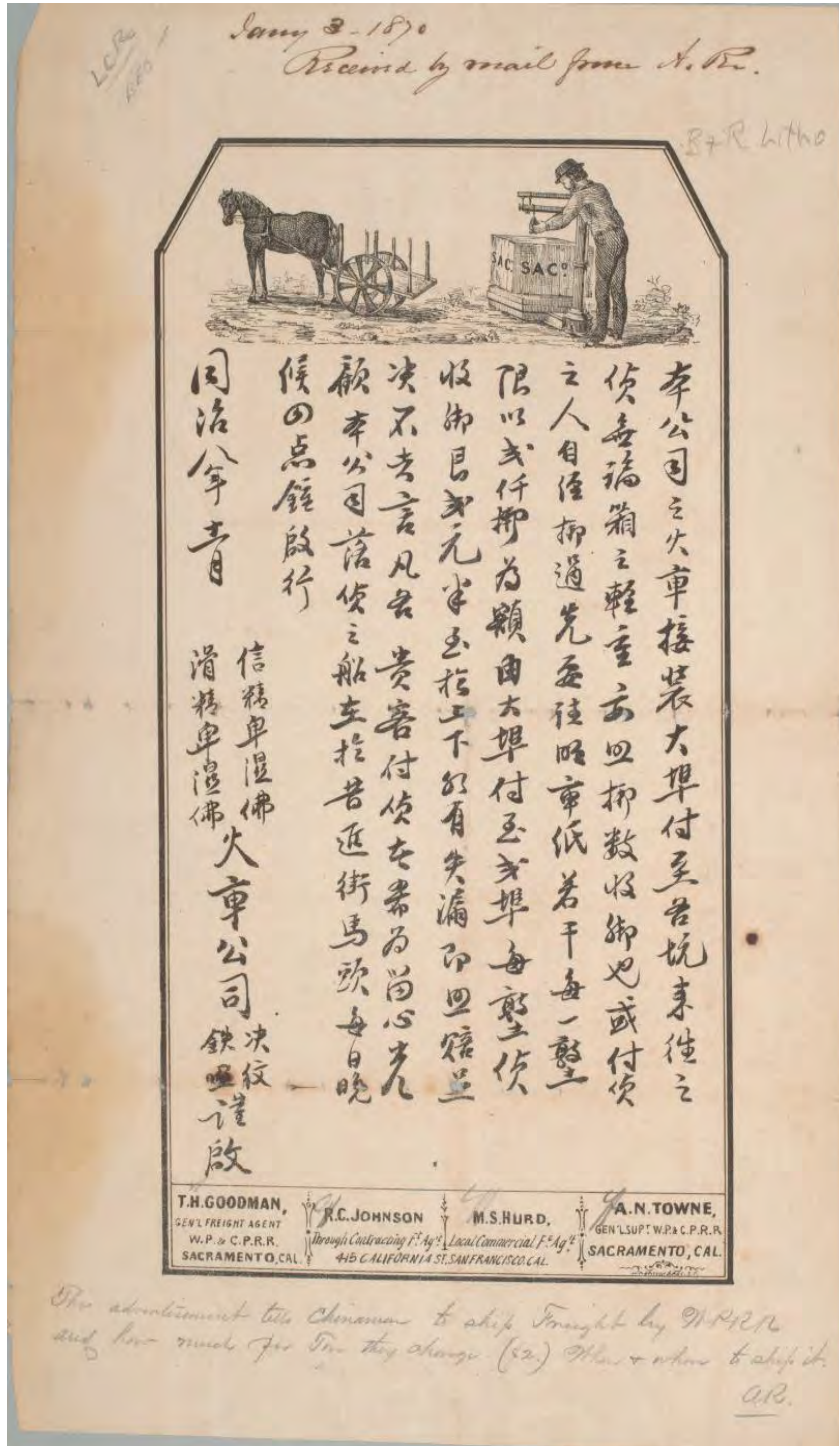 Jany 3-1870
Received by mail from A. R.
B & R Litho
SAC. SACº.
本公司之火車接裝大埠付至各坑来徃之
貨無論箱之輕重 照挷数收脚也或付貨
之人自 挷過先要 車紙若干每一墪
限以弍仟挷為額由大埠付至弍埠每墪貨
收脚艮弍元半至於上下 有失漏即照賠足
决不失言凡各 貴客付貨者希為留心光
顧本公司落貨之船在於昔進街馬頭每日晚
候四点鐘啟行
同治八年十一月
信精卑湿佛
滑精卑湿佛
火車公司
决紋
鉄
謹啟
T.H.GOODMAN,
GEN'L FREIGHT AGENT
W.P. & C.P.R.R.
SACRAMENTO, CAL.
R.C. JOHNSON
Through Contracting Ft. Agt.
M.S. HURD,
Local Commercial Ft. Agt.
415 CALIFORNIA ST. SAN FRANCISCO, CAL.
A.N. TOWNE,
GEN'L SUPT. W.P. & C.P.R.R.
SACRAMENTO, CAL.
This advertisement tells Chinaman to ship Freight by W.P.R.R
and how much per Ton they charge. ($2.) When & where to ship it.
A.R.